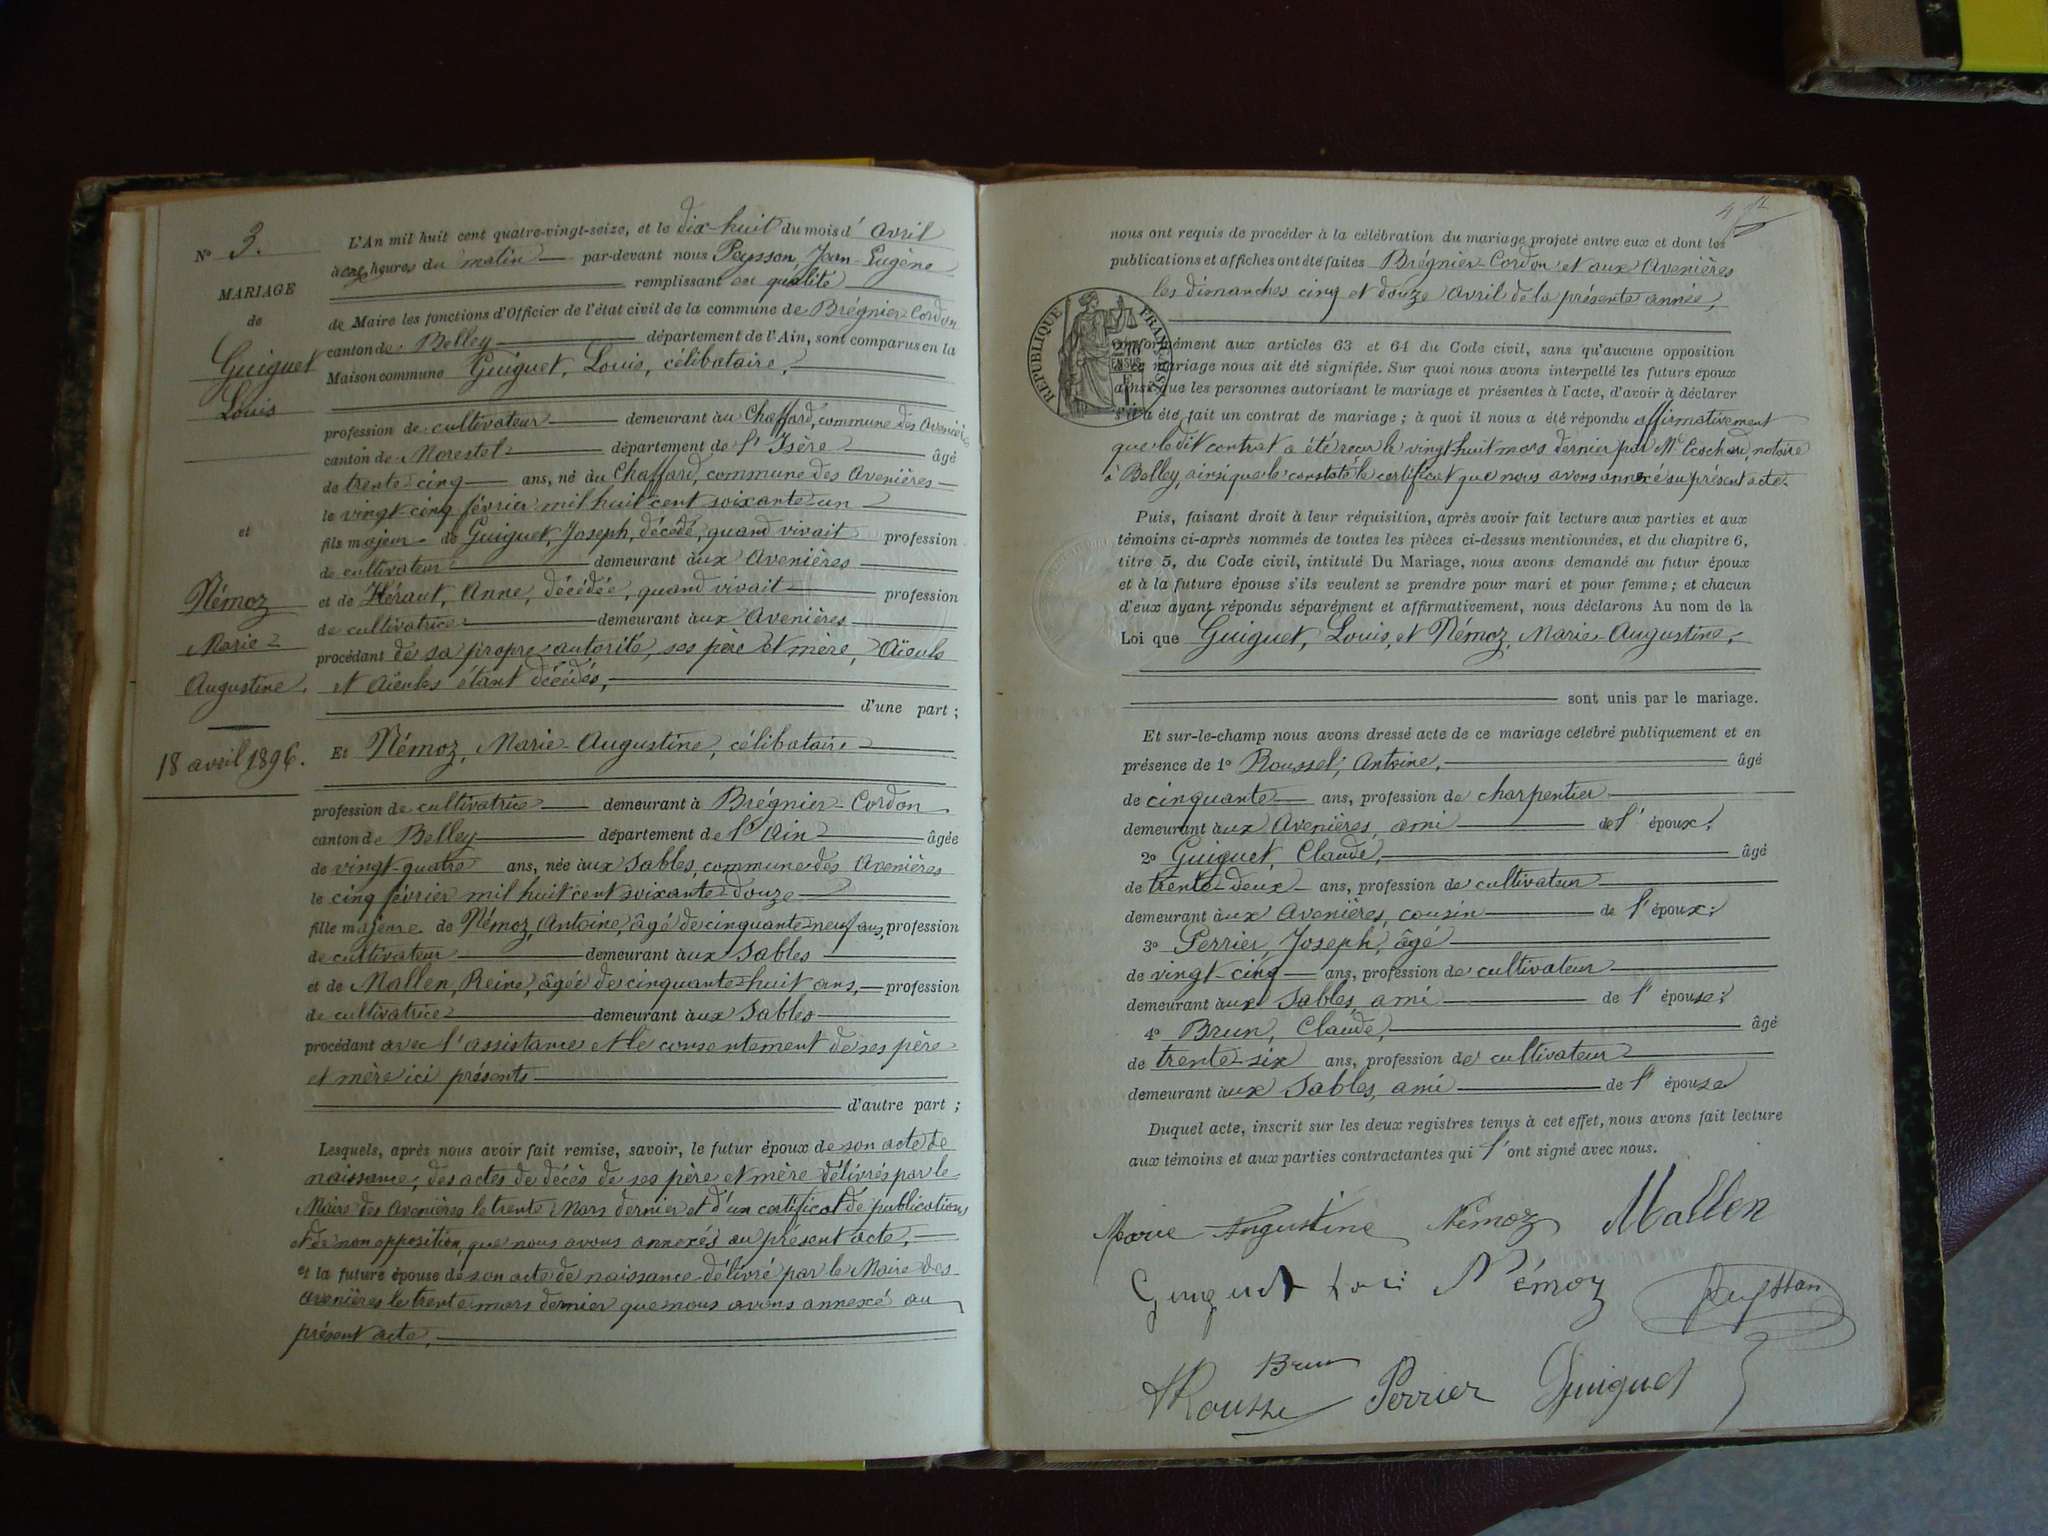 N° 3.
MARIAGE
de
Guiguet
Louis
et
Némoz
Marie-
Augustine.
18 avril 1896.
L'An mil huit cent quatre-vingt-seize, et le dix-huit du mois d'avril
à onze heures du matin par-devant nous Peysson, Jean-Eugène
remplissant en qualité
de Maire les fonctions d'Officier de l'état civil de la commune de Brégnier-Cordon
canton de Belley département de l'Ain, sont comparus en la
Maison commune Guiguet, Louis, célibataire,
profession de cultivateur demeurant au Chaffard, commune des Avenières
canton de Morestel département de l'Isère âgé
de trente-cinq ans, né au Chaffard, commune des Avenières
le vingt-cinq février mil huit cent soixante-un
fils majeur de Guiguet, Joseph, décédé, quand vivait profession
de cultivateur demeurant aux Avenières
et de Héraut, Anne, décédée, quand vivait profession
de cultivatrice demeurant aux Avenières
procédant de sa propre autorité, ses père et mère, Aïeuls
et Aïeules étant décédés,
d'une part ;
Et Némoz, Marie-Augustine, célibataire
profession de cultivatrice demeurant à Brégnier-Cordon
canton de Belley département de l'Ain âgée
de vingt-quatre ans, née aux Sables, commune des Avenières
le cinq février mil huit cent soixante-douze
fille majeure de Némoz, Antoine, âgé de cinquante-neuf ans, profession
de cultivateur demeurant aux Sables
et de Mallen, Reine, âgée de cinquante-huit ans, profession
de cultivatrice demeurant aux Sables
procédant avec l'assistance et le consentement de ses père
et mère ici présents
d'autre part ;
Lesquels, après nous avoir fait remise, savoir, le futur époux de son acte de
naissance, des actes de décès de ses père et mère délivrés par le
Maire des Avenières le trente Mars dernier et d'un certificat de publications
et de non opposition, que nous avons annexés au présent acte,
et la future épouse de son acte de naissance délivré par le Maire des
Avenières le trente mars dernier que nous avons annexé au
présent acte,
nous ont requis de procéder à la célébration du mariage projeté entre eux et dont les
publications et affiches ont été faites Brégnier-Cordon et aux Avenières
les dimanches cinq et douze Avril de la présente année,
RÉPUBLIQUE FRANÇAISE
conformément aux articles 63 et 64 du Code civil, sans qu'aucune opposition
à ce mariage nous ait été signifiée. Sur quoi nous avons interpellé les futurs époux
ainsi que les personnes autorisant le mariage et présentes à l'acte, d'avoir à déclarer
s'il a été fait un contrat de mariage ; à quoi il nous a été répondu affirmativement
que le dit contrat a été reçu le vingt-huit mars dernier par Me Ecochard, notaire
à Belley, ainsi que le constate le certificat que nous avons annexé au présent acte.
Puis, faisant droit à leur réquisition, après avoir fait lecture aux parties et aux
témoins ci-après nommés de toutes les pièces ci-dessus mentionnées, et du chapitre 6,
titre 5, du Code civil, intitulé Du Mariage, nous avons demandé au futur époux
et à la future épouse s'ils veulent se prendre pour mari et pour femme ; et chacun
d'eux ayant répondu séparément et affirmativement, nous déclarons Au nom de la
Loi que Guiguet, Louis, et Némoz, Marie-Augustine,
sont unis par le mariage.
Et sur-le-champ nous avons dressé acte de ce mariage célébré publiquement et en
présence de 1° Roussel, Antoine, âgé
de cinquante ans, profession de charpentier
demeurant aux Avenières, ami de l'époux ;
2° Guiguet, Claude, âgé
de trente-deux ans, profession de cultivateur
demeurant aux Avenières, cousin de l'époux ;
3° Perrier, Joseph, âgé
de vingt-cinq ans, profession de cultivateur
demeurant aux Sables, ami de l'épouse ;
4° Brun, Claude, âgé
de trente-six ans, profession de cultivateur
demeurant aux Sables, ami de l'épouse
Duquel acte, inscrit sur les deux registres tenus à cet effet, nous avons fait lecture
aux témoins et aux parties contractantes qui l'ont signé avec nous.
Marie Augustine Némoz Mallen
Guiguet Loui Némoz Peysson
Brun
Rousse Perrier Guiguet